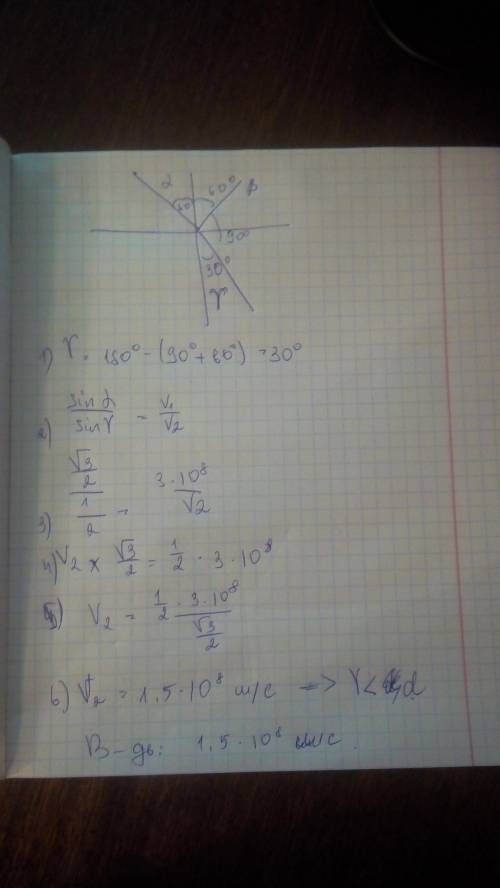 α 60° 60° β
90°
30°
γ
1) γ = 180° - (90° + 60°) = 30°
2) sin α / sin γ = V₁ / V₂
3) (√3/2) / (1/2) = 3·10⁸ / V₂
4) V₂ × √3/2 = 1/2 · 3·10⁸
5) V₂ = (1/2 · 3·10⁸) / (√3/2)
6) V₂ = 1,5·10⁸ м/с => γ < α
В-дь: 1,5·10⁸ м/с.